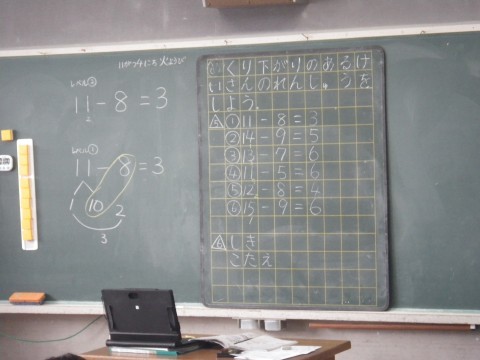 11がつ4にち 火ようび
レベル②
11-8=3
2
レベル①
11-8=3
1 10 2
3
くり下がりのあるけ
いさんのれんしゅうを
しよう。
①11-8=3
②14-9=5
③13-7=6
④11-5=6
⑤12-8=4
⑥15-9=6
しき
こたえ